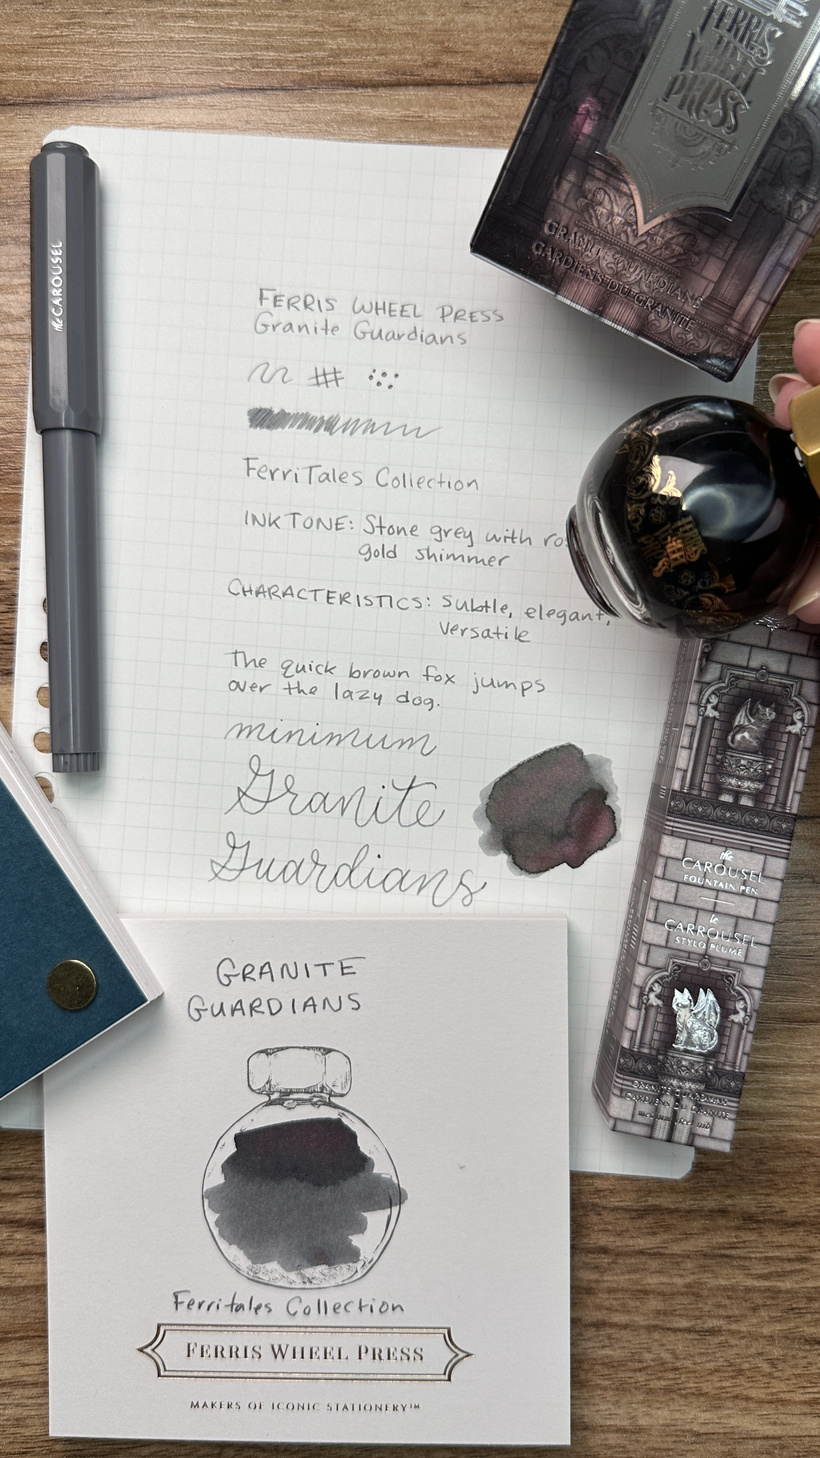 FERRIS
WHEEL
PRESS
GRANITE GUARDIANS
GARDIENS DU GRANITE
the CAROUSEL
FERRIS WHEEL PRESS
Granite Guardians
FerriTales Collection
INK TONE: Stone grey with
gold shimmer
CHARACTERISTICS: Subtle, elegant,
versatile
The quick brown fox jumps
over the lazy dog.
minimum
Granite
Guardians
the
CAROUSEL
FOUNTAIN PEN
le
CARROUSEL
STYLO PLUME
GRANITE GUARDIANS
GARDIENS DU GRANITE
GRANITE
GUARDIANS
Ferritales Collection
FERRIS WHEEL PRESS
MAKERS OF ICONIC STATIONERY™